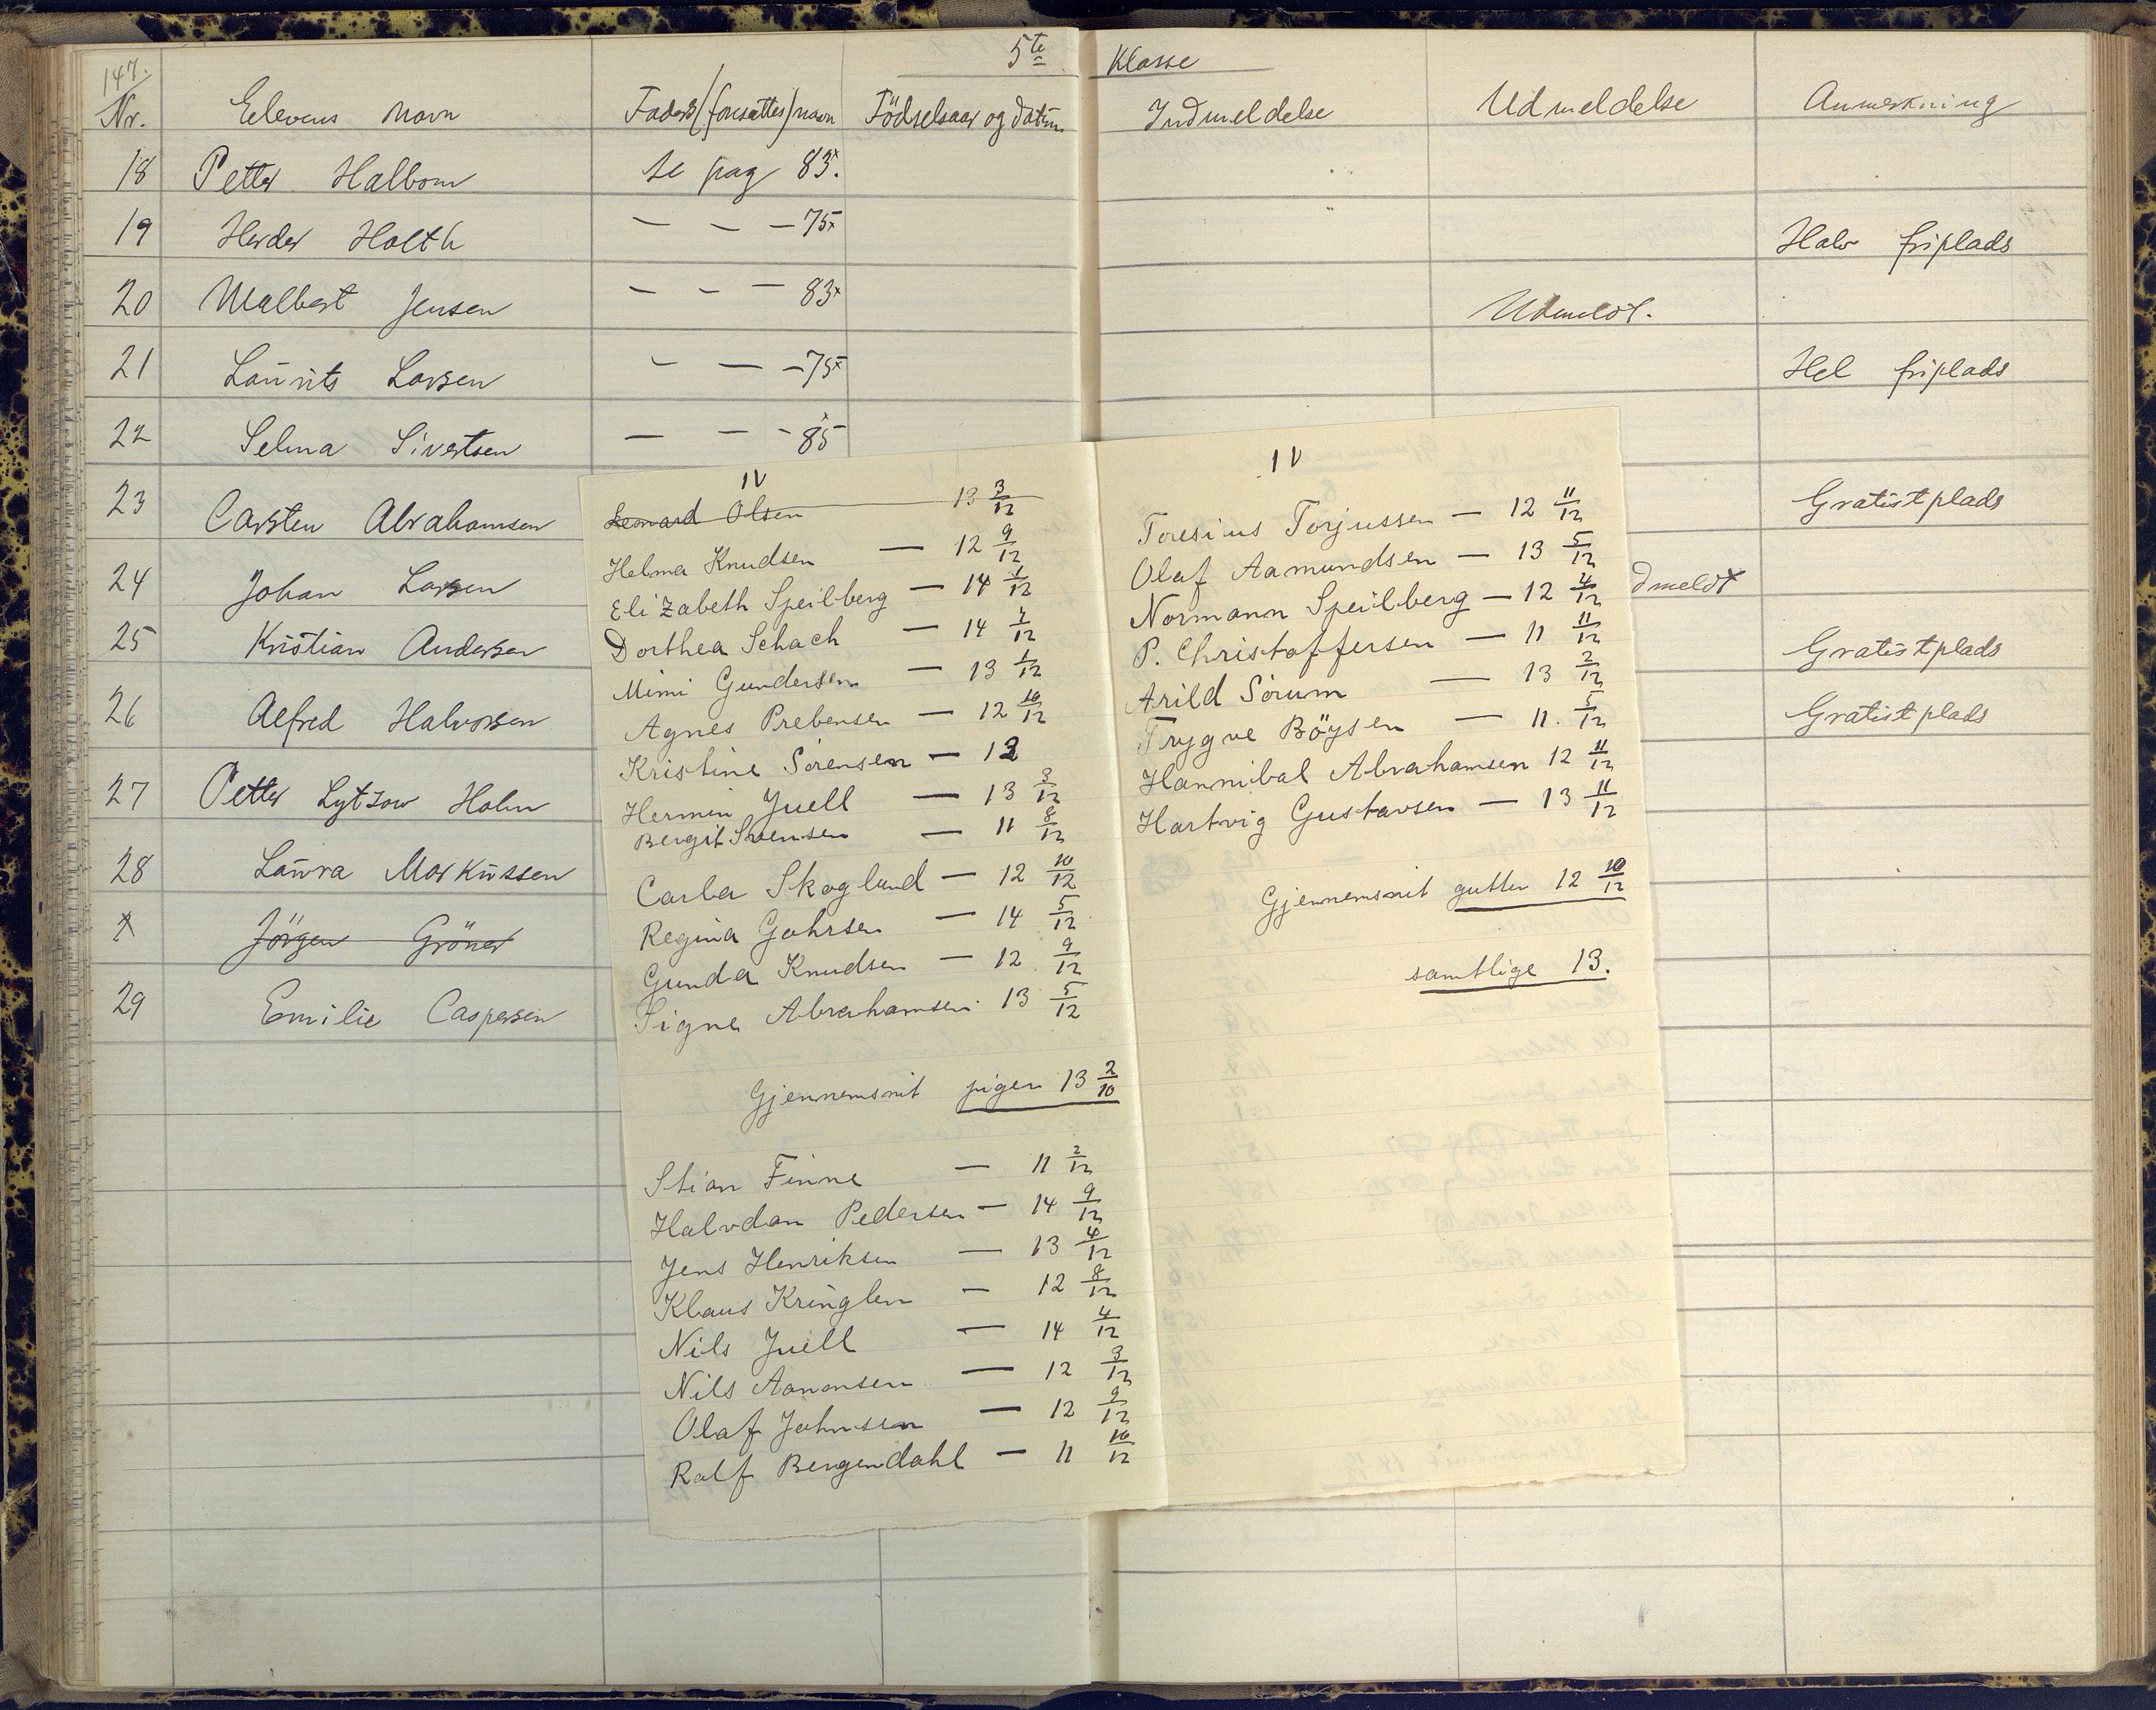 5te Klasse
147.
Nr. Elevens navn Faders/(foresattes) navn Födselsaar og datum Indmeldelse Udmeldelse Anmerkning
18 Petter Halbom se pag 83x.
19 Herder Holth — — — 75x Halv friplads
20 Walbert Jensen — — — 83x Udmeldt.
21 Laurits Larsen — — — 75x Hel friplads
22 Selma Sivertsen — — - 85x
23 Carsten Abrahamsen Gratistplads
24 Johan Larsen dmeldt
25 Kristian Andersen Gratistplads
26 Alfred Halvorsen Gratistplads
27 Petter Lytzow Holm
28 Laura Markussen
Jörgen Gröner
29 Emilie Caspersen
IV
Leonard Olsen 13 3/12
Helma Knudsen — 12 9/12
Elizabeth Speilberg — 14 1/12
Dorthea Schach — 14 1/12
Mimi Gundersen — 13 1/12
Agnes Prebensen — 12 10/12
Kristine Sörensen — 13
Hermin Juell — 13 3/12
Bergit Svensen — 11 8/12
Carla Skoglund — 12 10/12
Regina Gahrsen — 14 5/12
Gunda Knudsen — 12 9/12
Signe Abrahamsen 13 5/12
Gjennemsnit piger 13 2/10
Stian Finne — 11 2/12
Halvdan Pedersen — 14 9/12
Jens Henriksen — 13 4/12
Klaus Kringlen — 12 8/12
Nils Juell — 14 4/12
Nils Aanonsen — 12 3/12
Olaf Johnsen — 12 9/12
Ralf Bergendahl — 11 10/12
IV
Toresius Torjussen — 12 11/12
Olaf Aamundsen — 13 5/12
Normann Speilberg — 12 4/12
P. Christoffersen — 11 11/12
Arild Sörum — 13 2/12
Trygve Böysen — 11. 5/12
Hannibal Abrahamsen 12 11/12
Hartvig Gustavsen — 13 11/12
Gjennemsnit gutter 12 10/12
samtlige 13.